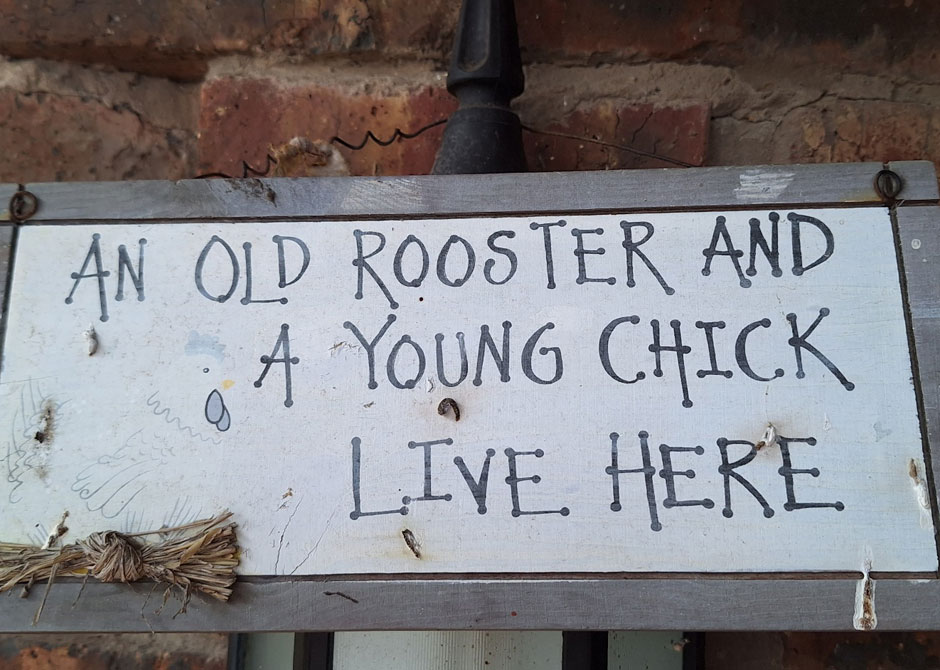 AN OLD ROOSTER AND
A YOUNG CHICK
LIVE HERE